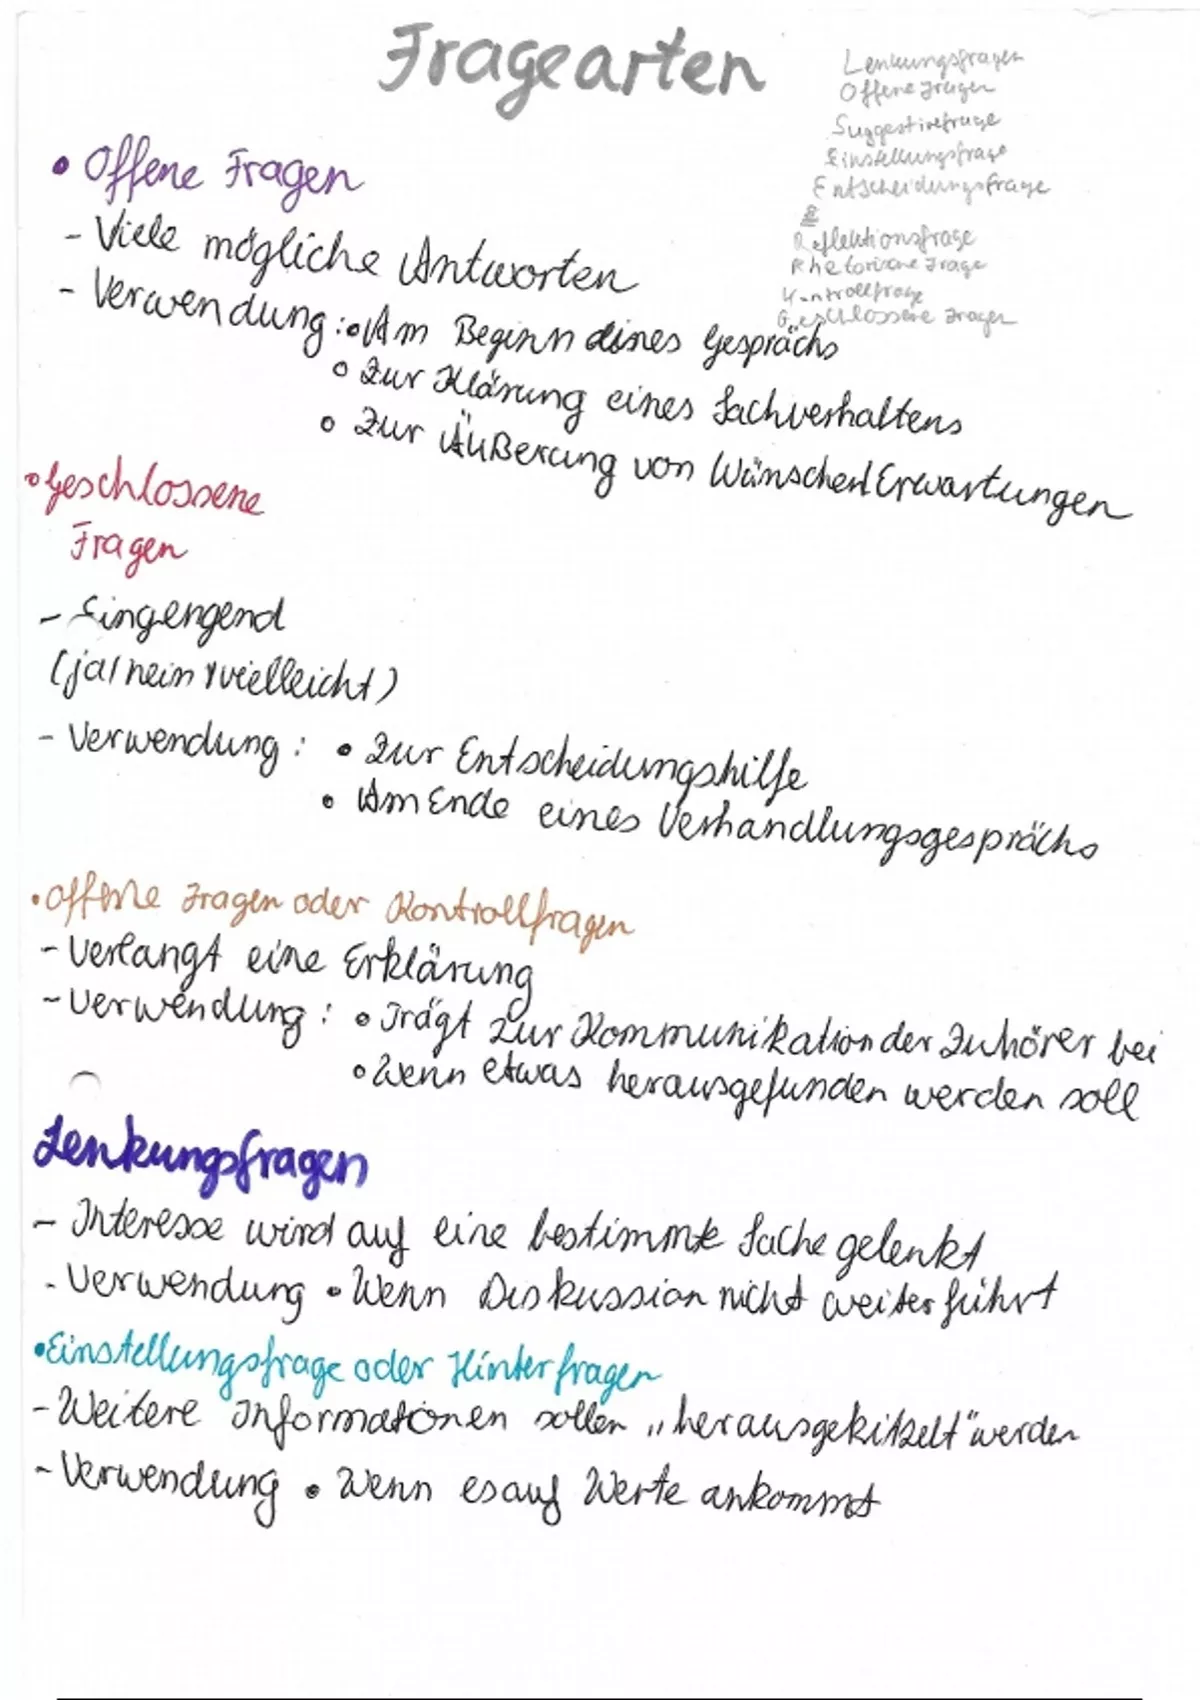 Fragearten
Lenkungsfragen
Offene Fragen
Suggestivfrage
Einstellungsfrage
Entscheidungsfrage
Reflektionsfrage
Rhetorische Frage
Kontrollfrage
Geschlossene Fragen
• Offene Fragen
- Viele mögliche Antworten
- Verwendung: o Am Beginn eines Gesprächs
o Zur Klärung eines Sachverhaltens
o Zur Äußerung von Wünschen/Erwartungen
• Geschlossene
Fragen
- Eingengend
(ja/nein/vielleicht)
- Verwendung: • Zur Entscheidungshilfe
• Am Ende eines Verhandlungsgesprächs
• Offene Fragen oder Kontrollfragen
- Verlangt eine Erklärung
- Verwendung: • Trägt zur Kommunikation der Zuhörer bei
• Wenn etwas herausgefunden werden soll
Lenkungsfragen
- Interesse wird auf eine bestimmte Sache gelenkt
- Verwendung • Wenn Diskussion nicht weiter führt
• Einstellungsfrage oder Hinterfragen
- Weitere Informationen sollen „herausgekitzelt“ werden
- Verwendung • Wenn es auf Werte ankommt